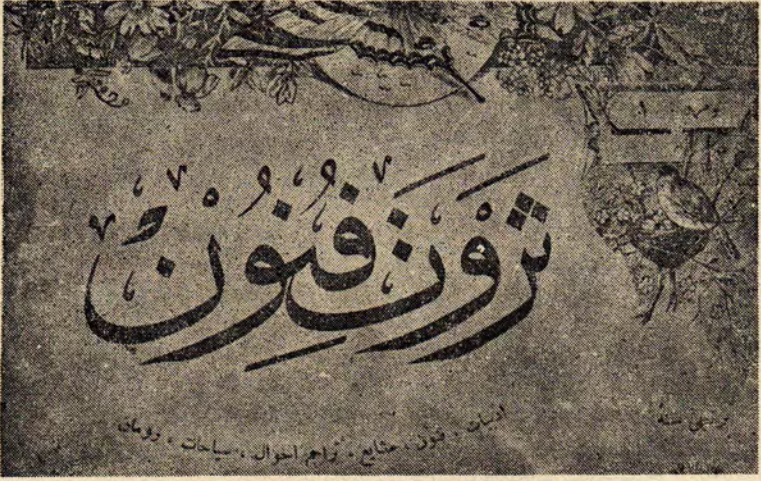 ثروت فنون
ادبيات ، فنون ، صنايع ، تراجم احوال ، سياحات ، رومان
برنجى سنه